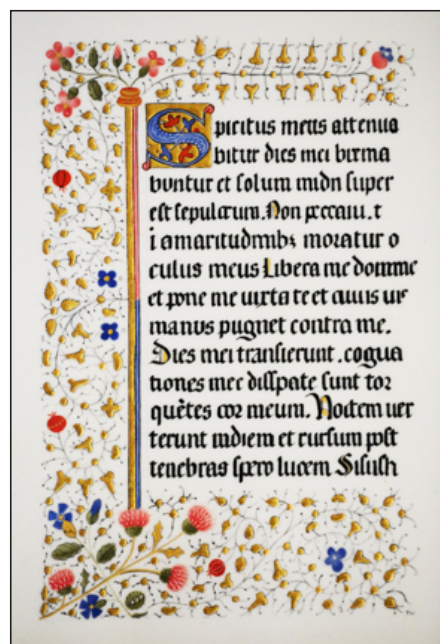 Spiritus meus attenua
bitur dies mei brevia
buntur et solum midn super
est sepulcrum. Non peccavi. t
i amaritudinibȝ moratur o
culus meus Libera me domine
et pone me iuxta te et cuius uis
manus pugnet contra me.
Dies mei transierunt. cogita
tiones mee dissipate sunt tor
quetes cor meum. Noctem uer
terunt indiem et rursum post
tenebras spero lucem Si